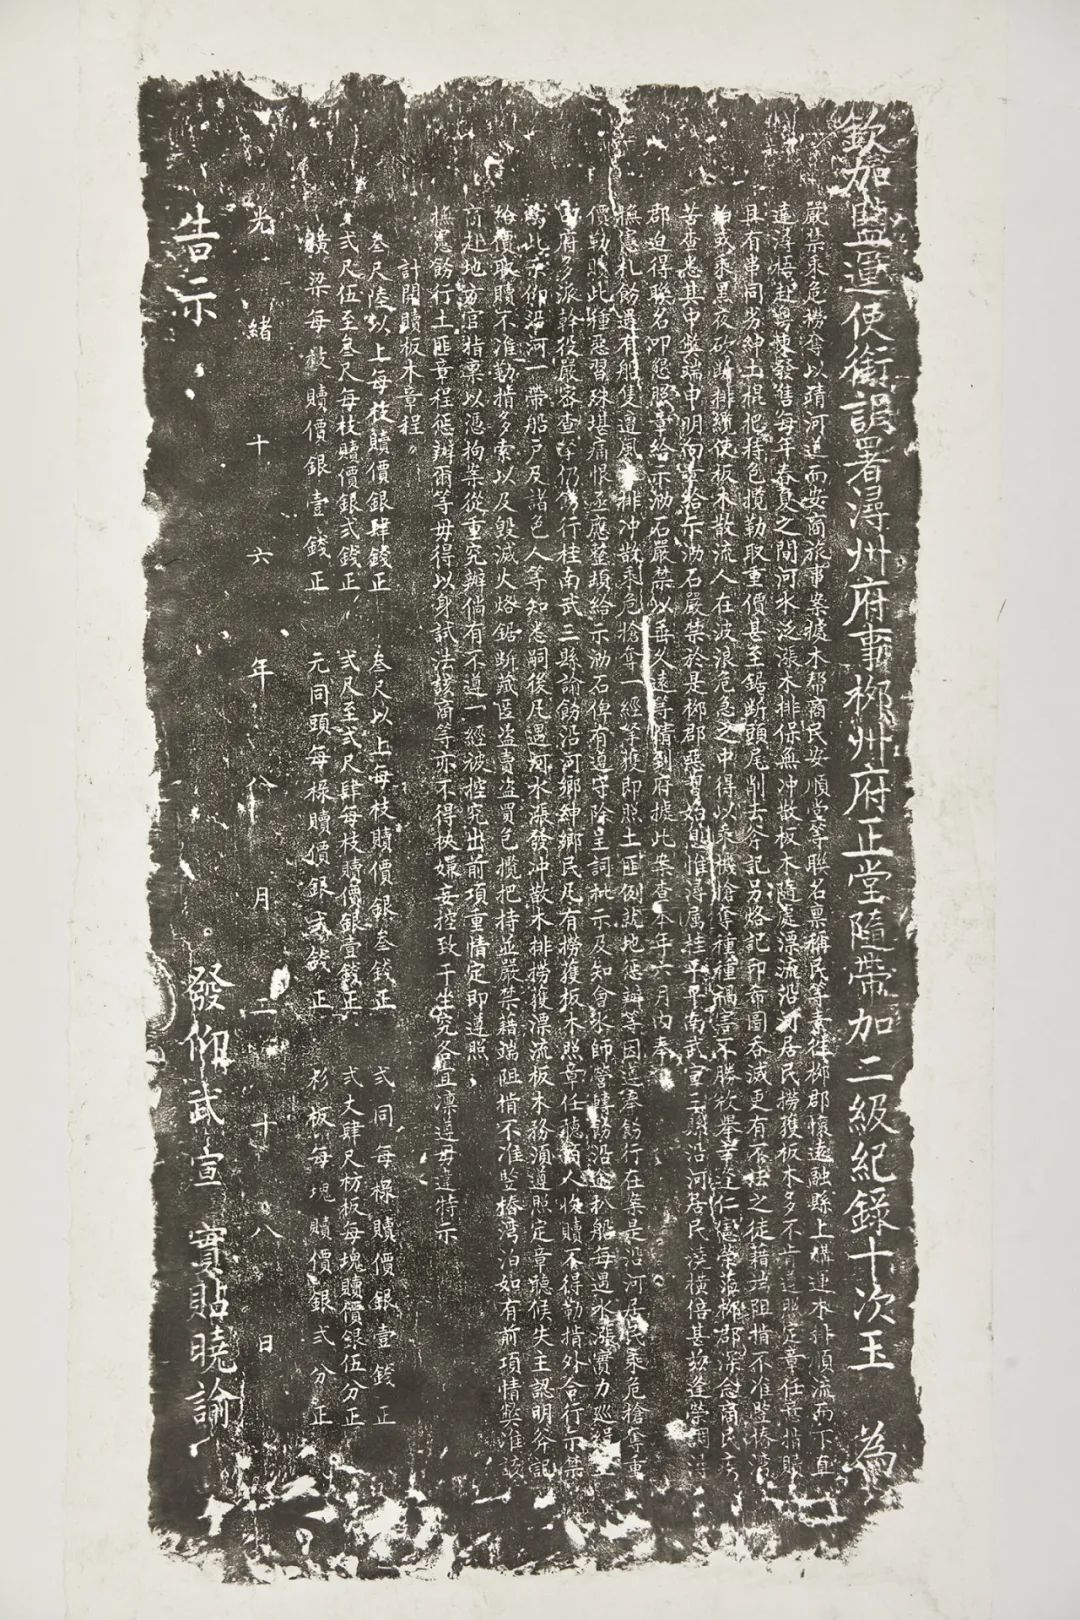 欽加鹽運使銜調署潯州府事柳州府正堂隨帶加二級紀錄十次王 為
嚴禁乘危撈奪以靖河道而安商旅事案據木帮商民安順堂等聯名稟稱民等素往柳郡懷遠融縣上構運木排順流而下直
達潯梧赴粵東發售每年春夏之間河水泛漲木排保無冲散板木隨處漂流沿河居民撈獲板木多不肯遵照定章任意掯贖
且有串同劣紳土棍把持包攬勒取重價甚至鋸断頭尾削去斧記另烙記印希圖吞滅更有不法之徒藉端阻掯不准竪樁灣
泊或乘黑夜砍断排纜使板木散流人在波浪危急之中得以乘機搶奪種種禍害不勝枚舉幸逢仁憲榮蒞柳郡深念商民疾
苦查悉其中獘端申明向章給示泐石嚴禁於是柳郡惡習始息惟潯属桂平平南武宣三縣沿河居民澆橫倍甚兹逢榮調潯
郡迫得聯名叩懇照章給示泐石嚴禁以垂久遠等情到府據此案查本年六月内奉
撫憲札飭遇有船隻遭風木排冲散乘危搶奪一經拏獲即照土匪例就地懲辦等因遵奉飭行在案是沿河居民乘危搶奪重
價勒贖此種惡習殊堪痛恨亟應整頓給示泐石俾有遵守除呈詞批示及知會水師營轉飭沿途扒船每遇水漲實力巡緝並
由府多派幹役嚴密查拏仍飭行桂南武三縣諭飭沿河鄉紳鄉民凡有撈獲板木照章任聽商人收贖不得勒掯外合行示禁
為此示仰沿河一帶船戶及諸色人等知悉嗣後凡遇河水漲發冲散木排撈獲漂流板木務須遵照定章聽候失主認明斧記
給價取贖不准勒掯多索以及毀滅火烙鋸断藏匿盜賣盜買包攬把持並嚴禁藉端阻掯不准竪樁灣泊如有前項情獘准該
商赴地方官指稟以憑拘案從重究辦倘有不遵一經被控究出前項重情定即遵照
撫憲飭行土匪章程懲辦爾等毋得以身試法該商等亦不得挾嫌妄控致干坐究各宜凜遵毋違特示
計開贖板木章程
叁尺陸以上每枝贖價銀肆錢正 叁尺以上每枝贖價銀叁錢正 弍同每椂贖價銀壹錢正
弍尺伍至叁尺每枝贖價銀弍錢正 弍尺至弍尺肆每枝贖價銀壹錢正 弍丈肆尺枋板每塊贖價銀伍分正
橫梁每𣔙贖價銀壹錢正 元同頭每椂贖價銀弍錢正 杉板每塊贖價銀弍分正
光緒十六年八月二十八日
告示 發仰武宣 實貼曉諭